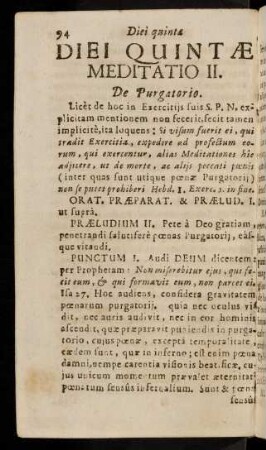 94 Diei quinta
DIEI QUINTÆ
MEDITATIO II.
De Purgatorio.
Licèt de hoc in Exercitijs suis S. P. N. ex-
plicitam mentionem non fecerit, fecit tamen
implicitè, ita loquens: Si visum fuerit ei, qui
tradit Exercitia, expedire ad profectum eo-
rum, qui exercentur, alias Meditationes hic
adjicere, ut de morte, ac alijs peccati pœnis
(inter quas sunt utique pœnæ Purgatorij)
non se putet prohiberi Hebd. 1. Exerc. 5. in fine.
ORAT. PRÆPARAT. & PRÆLUD. I.
ut suprà.
PRÆLUDIUM II. Pete à Deo gratiam
penetrandi salutiferè pœnas Purgatorij, eásque
vitandi.
PUNCTUM I. Audi DEUM dicentem
per Prophetam: Non miserebitur ejus, qui fe-
cit eum, & qui formavit eum, non parcet ei.
Isa 27. Hoc audiens, considera gravitatem
pœnarum purgatorij, quia nec oculus vi-
dit, nec auris audivit, nec in cor hominis
ascendit, quæ præparavit puniendis in purga-
torio, cujus pœnæ, exceptâ temporalitate,
eædem sunt, quæ in inferno; est enim pœna
damni, nempe carentia visionis beatificæ, cu-
jus unicum momentum prævalet æternitati
pœnarum sensûs infernalium. Sunt & pœnæ
sensûs